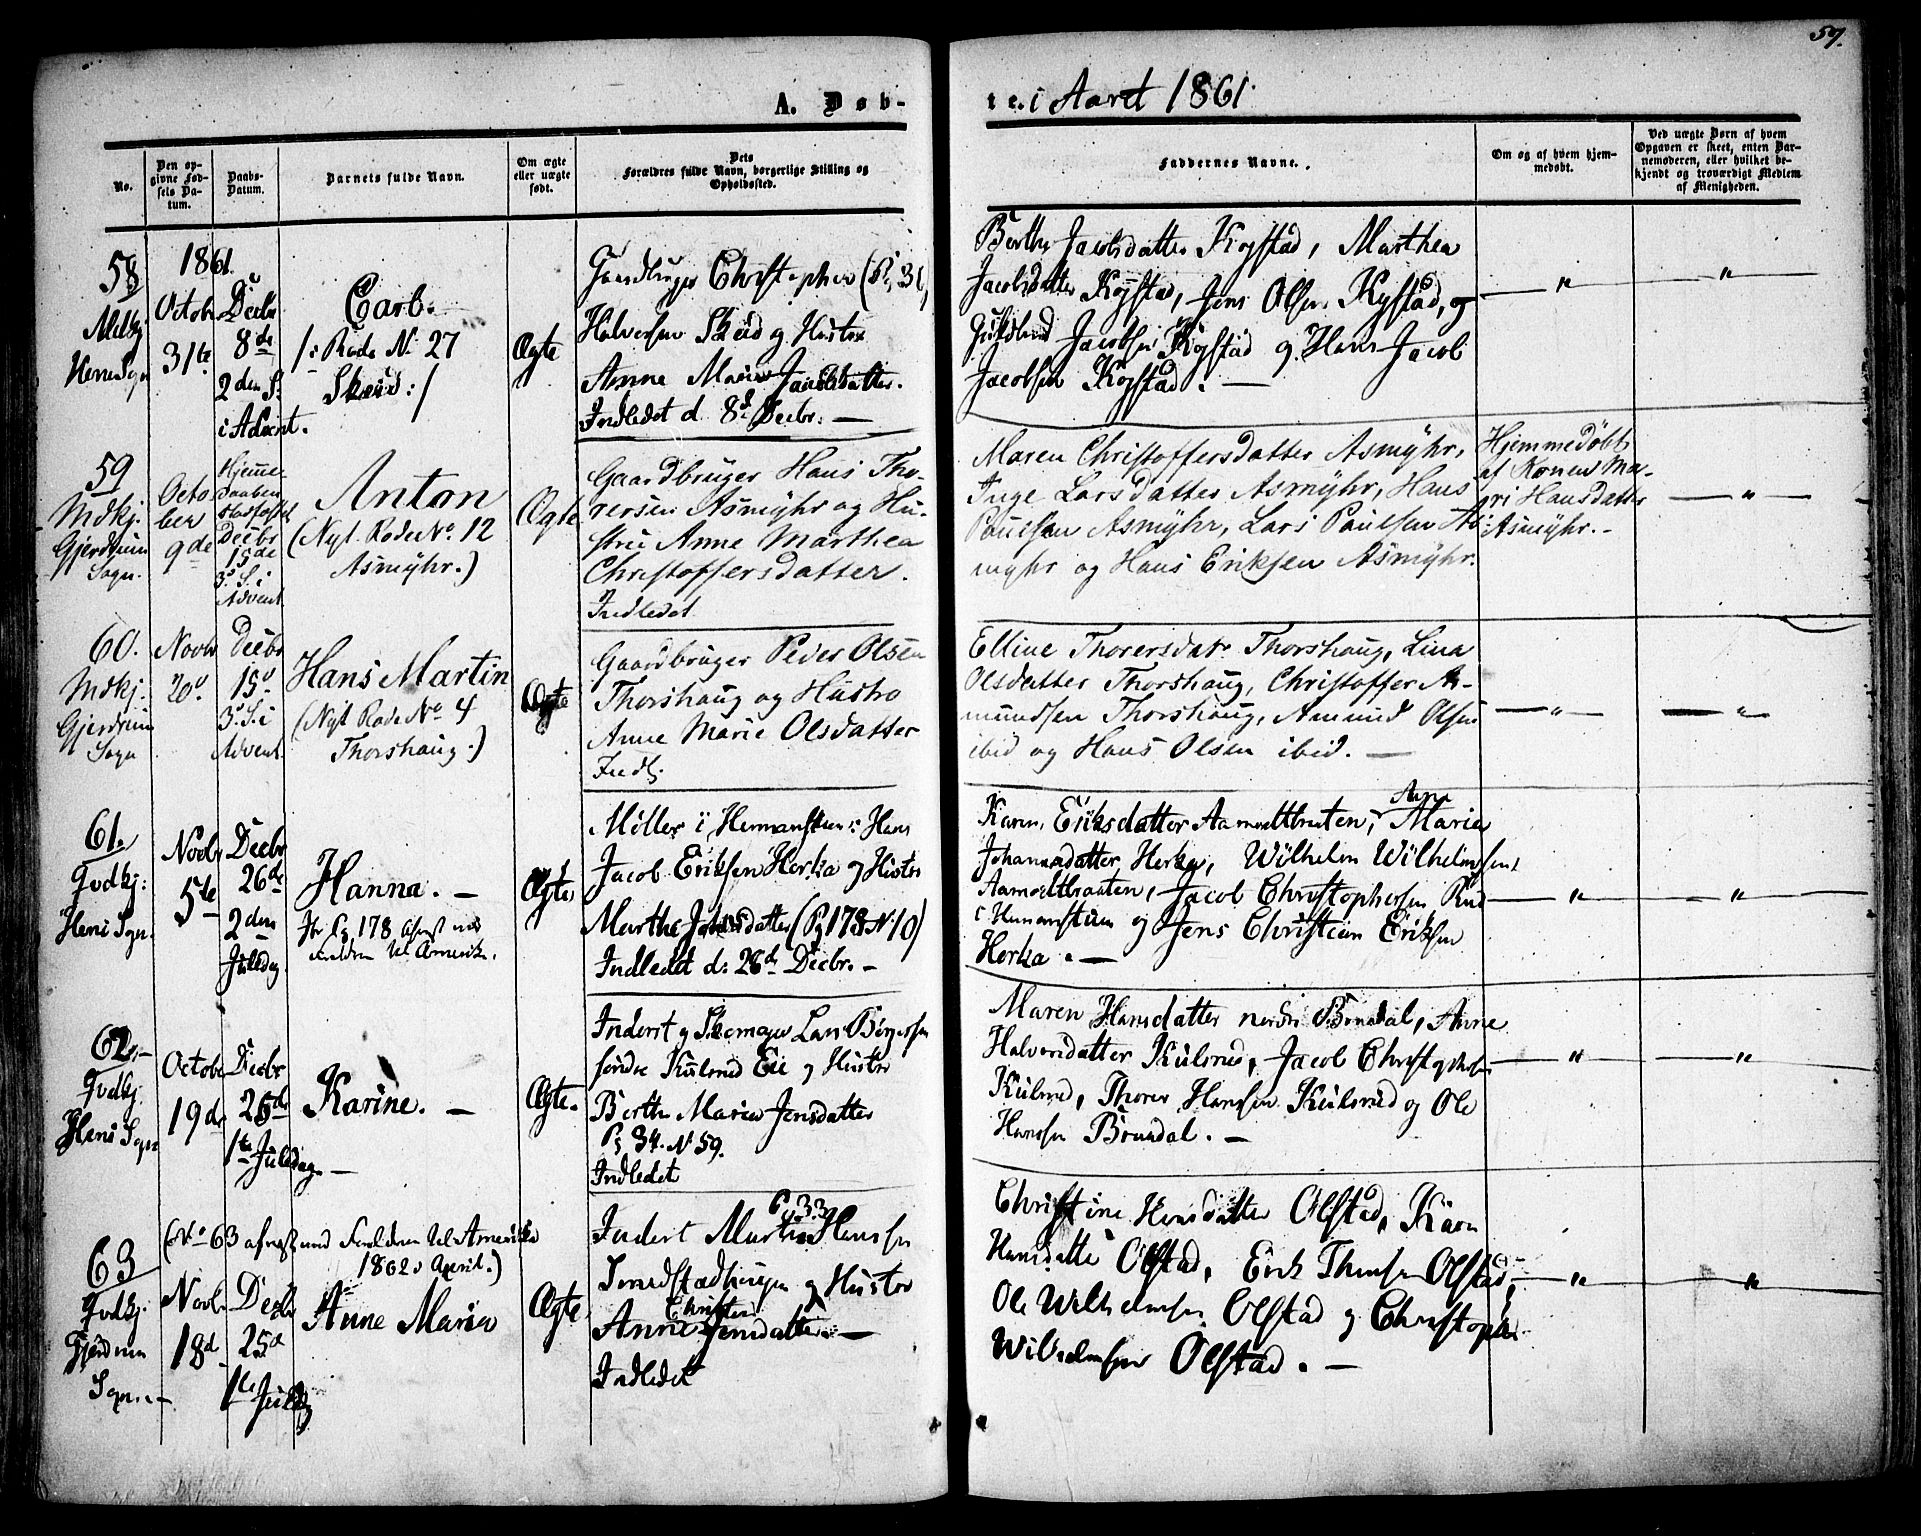 57.
A. Døb-
te. i Aaret 1861.
No.
Den op-
givne Fød-
sels Da-
tum.
Daabs-
Datum.
Barnets fulde Navn.
Om ægte
eller uægte
født.
Dets
Forældres fulde Navn, borgerlige Stilling og
Opholdssted.
Faddernes Navne.
Om og af hvem hjem-
medøbt.
Ved uægte Børn af hvem
Opgaven er skeet, enten Bar-
nemoderen, eller hvilket be-
kjendt og troværdigt Medlem
af Menigheden.
58
1861.
Octobr
31te
Decbr
8de
2den S.
i Advent.
Carl.
/: i Rode No 27
Skeid :/
Ægte
Gaardbruger Christopher (P. 31,
Halvorsen Skeid og Hustro
Anne Maria Jacobsdatter.
Indledet d. 8d Decbr. —
Berthe Jacobsdatter Kogstad, Marthea
Jacobsdatter Kogstad, Jens Olsen Kogstad, og
Jacobsen Kogstad og Hans Jacob
Jacobsen Kogstad. —
— " —
— " —
59
Mdkj.
Gjerdrum
Sogn.
Octo
ber
9de
Hjemme-
daaben
stadfæstet
Decbr
15de
3. S. i
Advent
Anton
(Nyt. Rode No. 12
Asmyhr.)
Ægte
Gaardbruger Hans Tho-
rersen Asmyhr og Hu-
stru Anne Marthea
Christoffersdatter.
Indledet
Maren Christoffersdatter Asmyhr,
Inge Larsdatter Asmyhr, Hans
Paulsen Asmyhr, Lars Paulsen As-
myhr og Hans Eriksen Asmyhr.
Hjemmedøbt
af Konen Ma-
ri Hansdatter
Asmyhr. -
— " —
60.
Mdkj.
Gjerdrum
Sogn
Novbr
20.
Decbr
15.
3. S. i
Advent.
Hans Martin
(Nyt Rode No. 4
Thorshaug.)
Ægte
Gaardbruger Peder Olsen
Thorshaug og Hustro
Anne Marie Olsdatter
Indl.
Elline Thorersdatr. Thorshaug, Lina
Olsdatter Thorshaug, Christoffer A-
mundsen Thorshaug, Amund Olsen
ibid og Hans Olsen ibid. —
— " —
— " —
61.
Qvdkj:
Heni Sogn.
Novbr
5te
Decbr
26de
2den
Juledag
Hanna. —
Ægte
Møller i Hermanstuen: Hans
Jacob Eriksen Herka og Hustro
Marthe Johnsdatter (Pg 178 N. 10)
Indledet d: 26d Decbr. —
Karen Eriksdatter Aamodtbraaten, Anne Maria
Johannesdatter Herka, Wilhelm Wilhelmsen
Aamodtbraaten, Jacob Christophersen Rud
i Hermanstuen og Jens Christian Eriksen
Herka. —
— " —
— " —
62. —
Qvdkj.
Heni Sogn
Octobr
19de
Decbr
25de
1te Juledag. —
Karine. —
Ægte.
Inderst og Skomager Lars Børgersen
søndre Kulsrud Eie og Hustro
Berthe Maria Jensdatter
Pg 34. N. 59.
Indledet
Maren Hansdatter nordre Brudal, Anne
Halvorsdatter Kulsrud, Jacob Christophersen
Kulsrud, Thorer Hansen Kulsrud og Ole
Hansen Brudal. —
— " —
— " —
(No 63 afreist med Forældrene til Amerika
1862 April.)
63
Qvdkj.
Gjerdrum
Sogn. —
Novbr
18d.
Decbr
25d
1te Juledag
Anne Maria
Ægte.
Pg 33
Inderst Martin Hansen
og Hustro
Anne Christine Jensdatter. —
Indledet
Christine Hansdatter Olstad, Karen
Hansdatter Olstad, Erik Olstad,
Ole Wilhelmsen Olstad og Christopher
Wilhelmsen Olstad. —
— " —
— " —